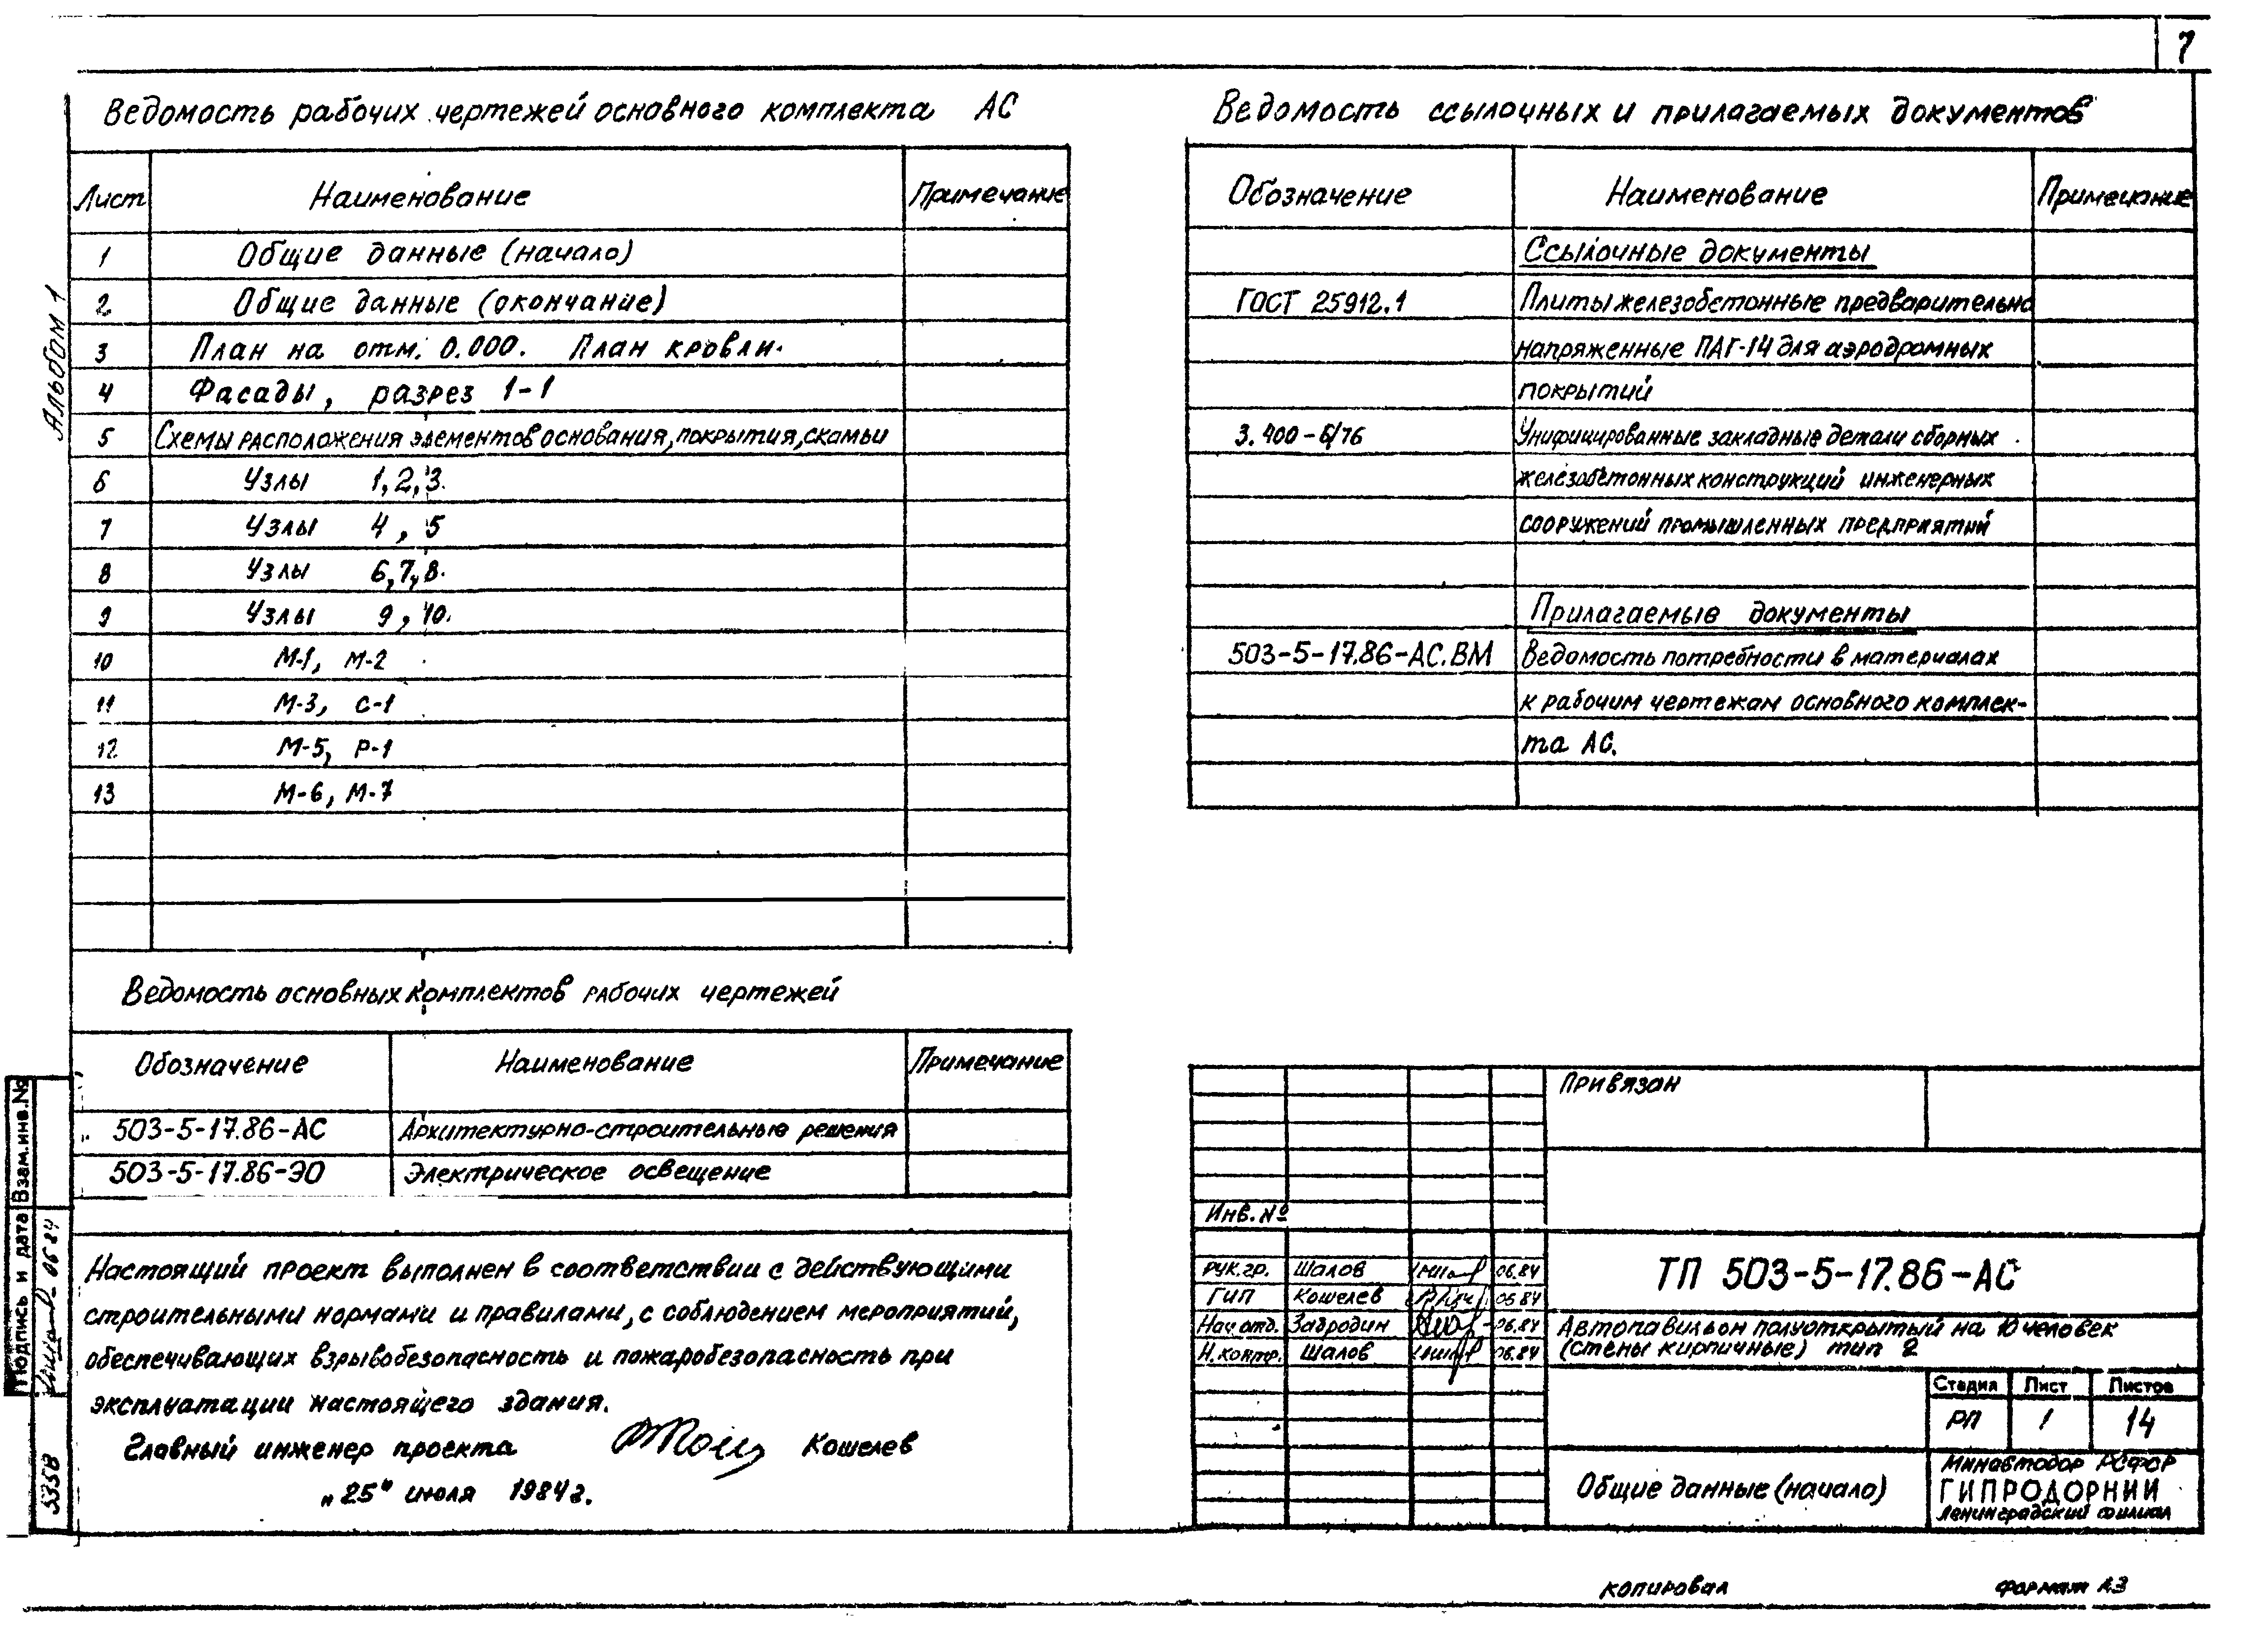 7
Альбом 1
Ведомость рабочих чертежей основного комплекта АС
Лист Наименование Примечание
1 Общие данные (начало)
2 Общие данные (окончание)
3 План на отм. 0.000. План кровли.
4 Фасады, разрез 1-1
5 Схемы расположения элементов основания, покрытия, скамьи
6 Узлы 1, 2, 3.
7 Узлы 4, 5
8 Узлы 6, 7, 8.
9 Узлы 9, 10.
10 М-1, М-2
11 М-3, С-1
12 М-5, Р-1
13 М-6, М-7
Ведомость основных комплектов рабочих чертежей
Обозначение Наименование Примечание
503-5-17.86-АС Архитектурно-строительные решения
503-5-17.86-ЭО Электрическое освещение
Настоящий проект выполнен в соответствии с действующими
строительными нормами и правилами, с соблюдением мероприятий,
обеспечивающих взрывобезопасность и пожаробезопасность при
эксплуатации настоящего здания.
Главный инженер проекта Кошелев
„25" июля 1984г.
Взам.инв.№
Подпись и дата
06 84
5358
Ведомость ссылочных и прилагаемых документов
Обозначение Наименование Примечание
Ссылочные документы
ГОСТ 25912.1 Плиты железобетонные предварительно
напряженные ПАГ-14 для аэродромных
покрытий
3.400-6/76 Унифицированные закладные детали сборных
железобетонных конструкций инженерных
сооружений промышленных предприятий
Прилагаемые документы
503-5-17.86-АС.ВМ Ведомость потребности в материалах
к рабочим чертежам основного комплек-
та АС.
Привязан
Инв.№
Рук.гр. Шалов 06.84
ГИП Кошелев 06.84
Нач.отд. Забродин 06.84
Н.контр. Шалов 06.84
ТП 503-5-17.86-АС
Автопавильон полуоткрытый на 10 человек
(стены кирпичные) тип 2
Стадия Лист Листов
РП 1 14
Общие данные (начало)
Минавтодор РСФСР
ГИПРОДОРНИИ
Ленинградский филиал
Копировал Формат А3